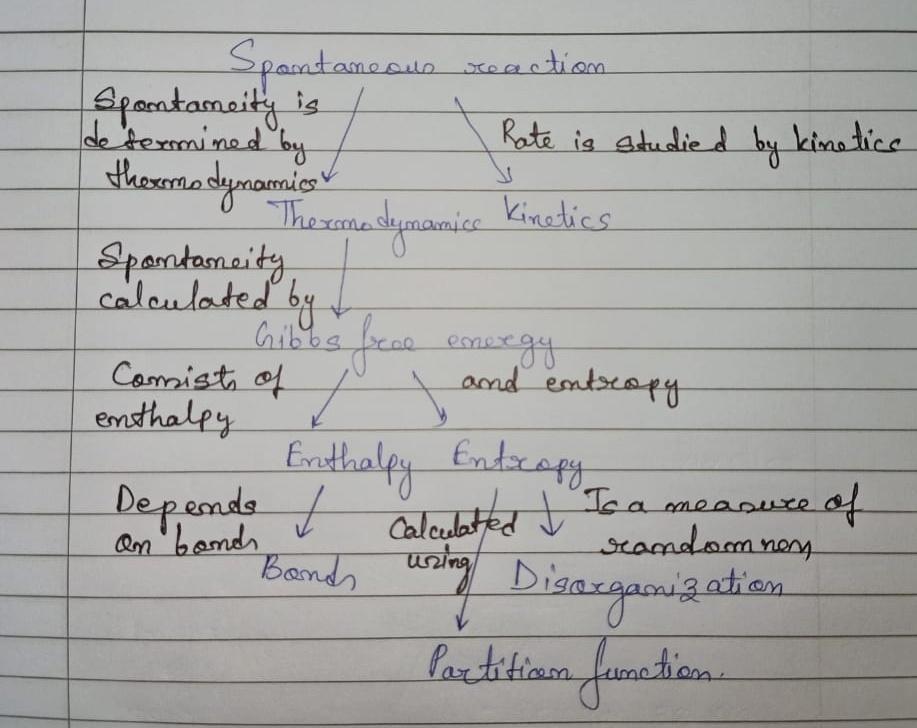 Spontaneous reaction
Spontaneity is
determined by
thermodynamics
Rate is studied by kinetics
Thermodynamics Kinetics
Spontaneity
calculated by
Gibbs free energy
Consists of
enthalpy
and entropy
Enthalpy Entropy
Depends
on bonds
Calculated
using
Is a measure of
randomness
Bonds
Disorganization
Partition function.